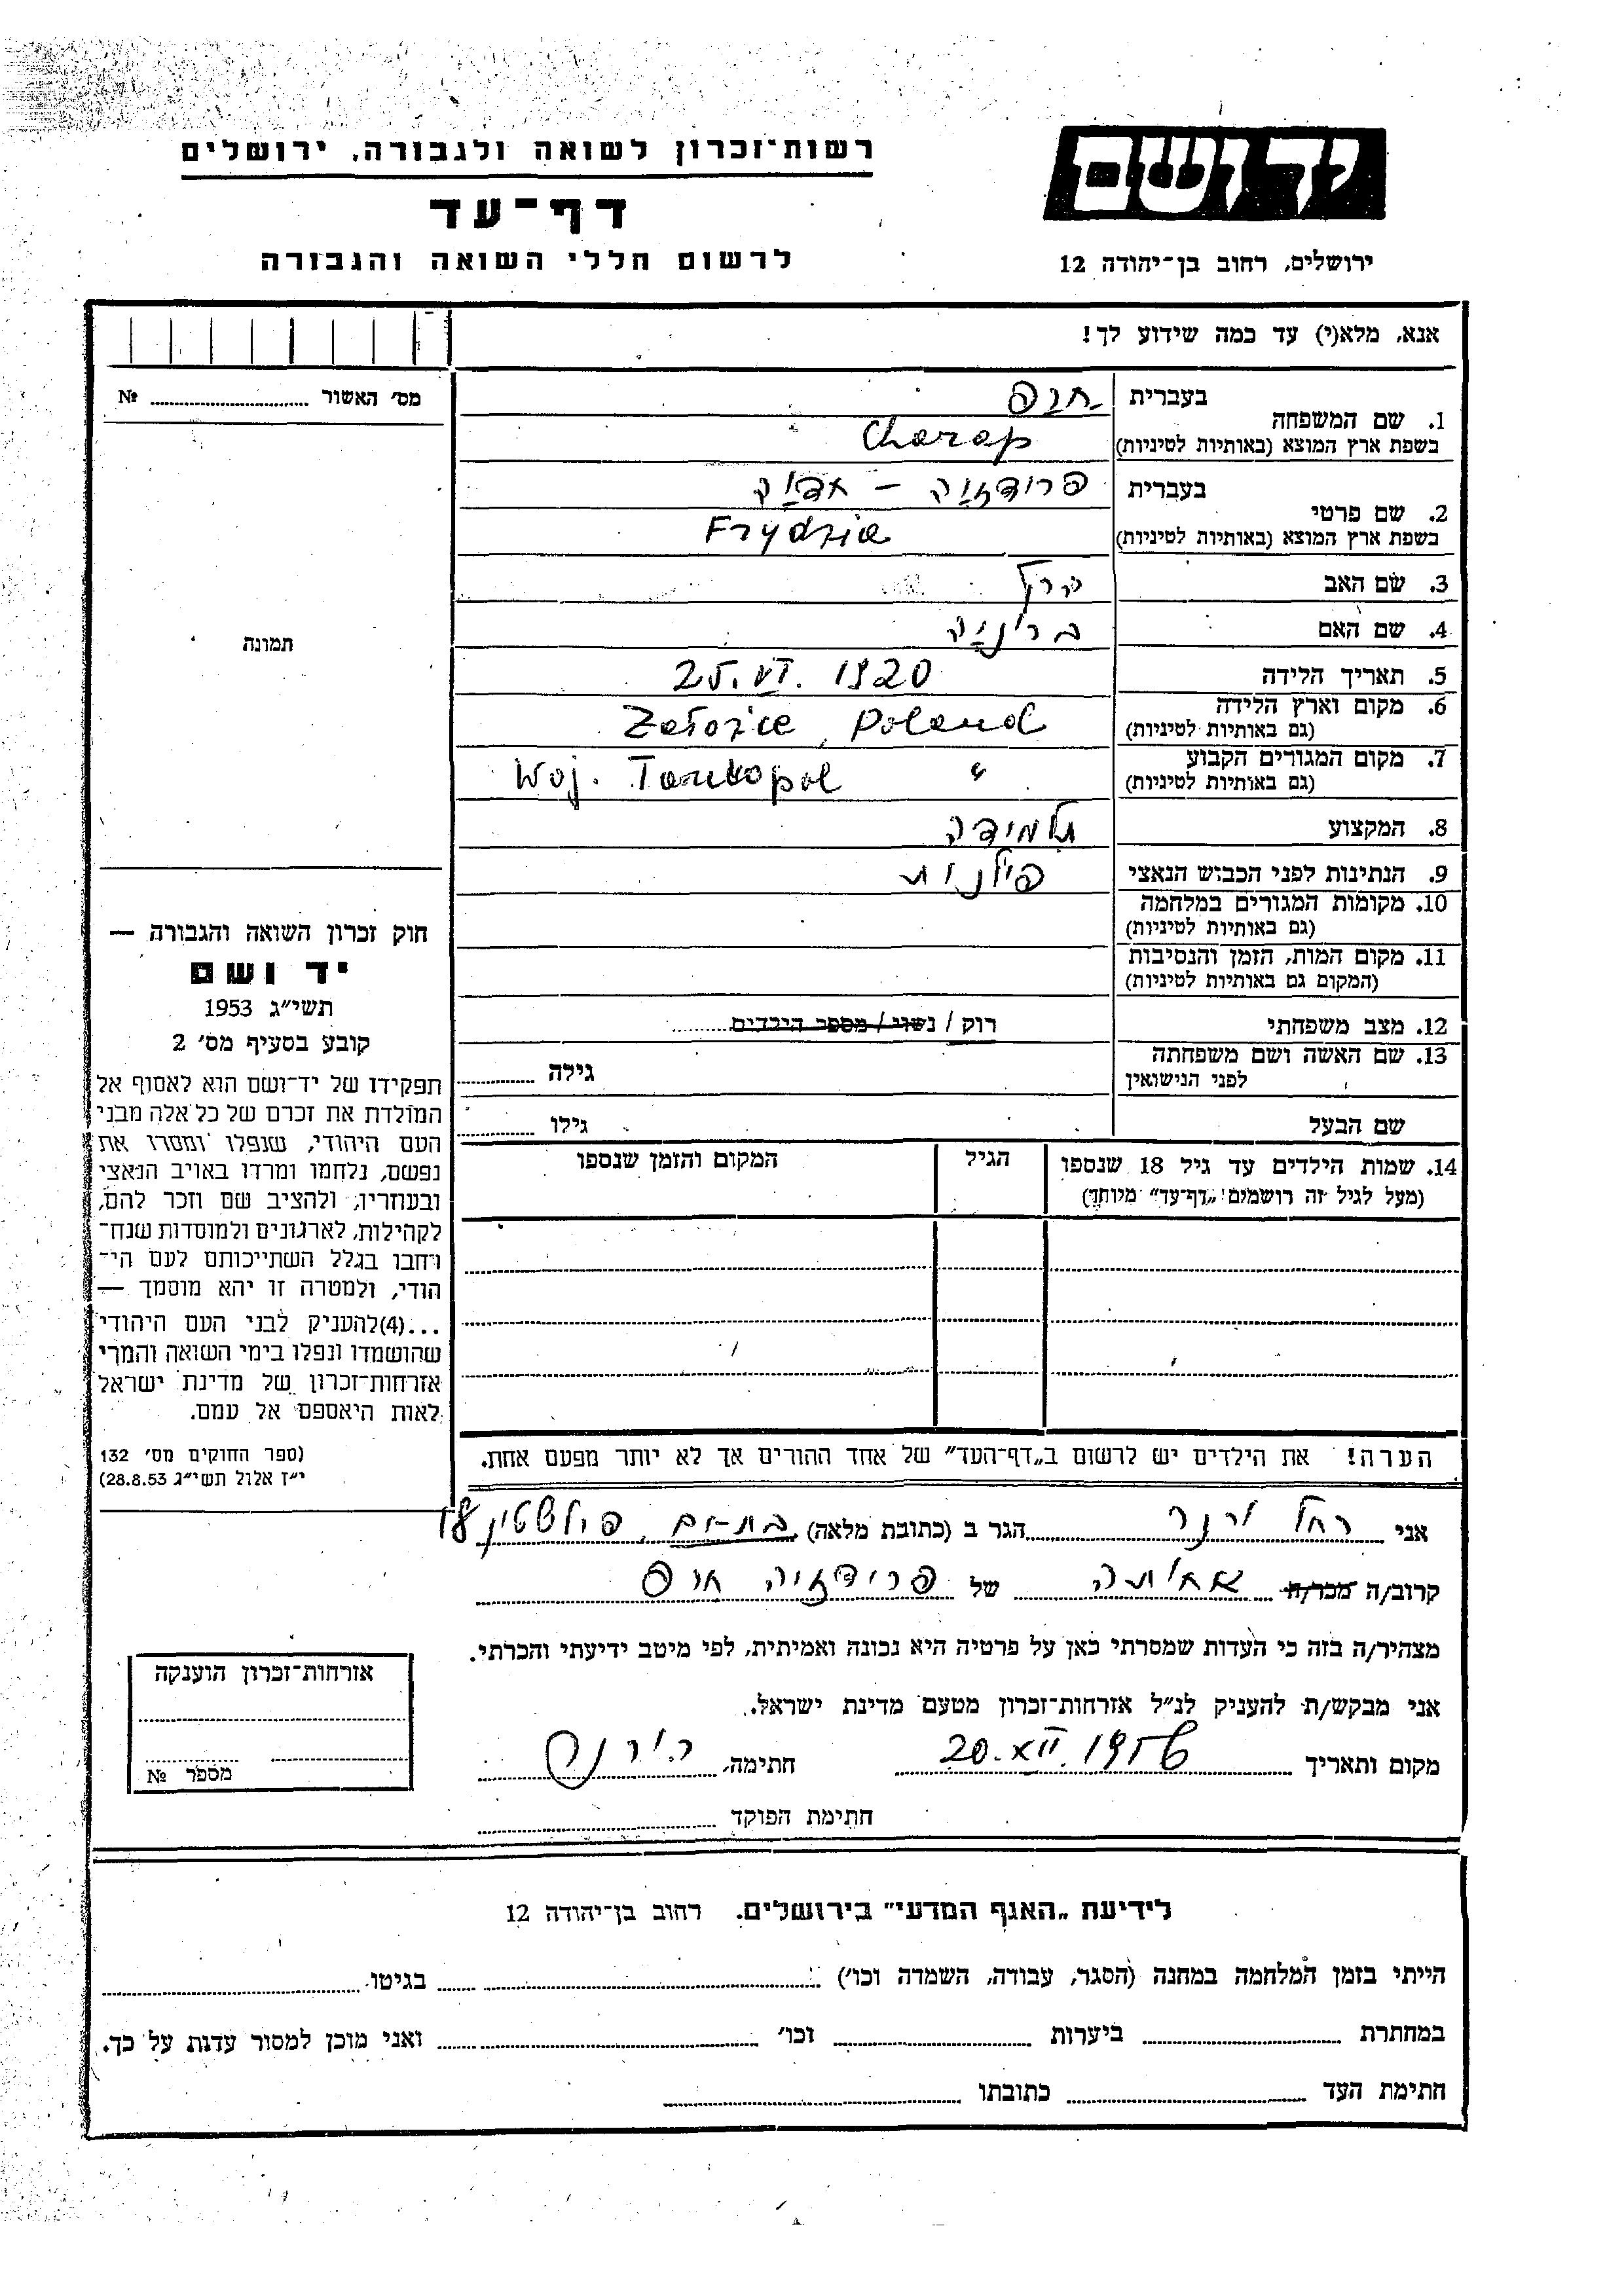 רשות־זכרון לשואה ולגבורה, ירושלים
יד ושם
דף־עד
לרשום חללי השואה והגבורה
ירושלים, רחוב בן־יהודה 12
אנא, מלא(י) עד כמה שידוע לך!
מס׳ האשור № 
1. שם המשפחה בעברית חרפ
בשפת ארץ המוצא (באותיות לטיניות) Charap
2. שם פרטי בעברית פרידזיה –
בשפת ארץ המוצא (באותיות לטיניות) Frydzia
3. שם האב
4. שם האם ברוניה
5. תאריך הלידה 25.VI.1920
6. מקום וארץ הלידה (גם באותיות לטיניות) Załoźce, Poland
7. מקום המגורים הקבוע (גם באותיות לטיניות) " Woj. Tarnopol
8. המקצוע תלמידה
9. הנתינות לפני הכבוש הנאצי פולנית
10. מקומות המגורים במלחמה (גם באותיות לטיניות)
11. מקום המות, הזמן והנסיבות (המקום גם באותיות לטיניות)
12. מצב משפחתי רוק / נשוי / מספר הילדים
13. שם האשה ושם משפחתה לפני הנישואין גילה
שם הבעל גילו
14. שמות הילדים עד גיל 18 שנספו הגיל המקום והזמן שנספו
(מעל לגיל זה רושמים „דף־עד״ מיוחד)
תמונה
חוק זכרון השואה והגבורה —
יד ושם
תשי״ג 1953
קובע בסעיף מס׳ 2
תפקידו של יד־ושם הוא לאסוף אל
המולדת את זכרם של כל אלה מבני
העם היהודי, שנפלו ומסרו את
נפשם, נלחמו ומרדו באויב הנאצי
ובעוזריו, ולהציב שם וזכר להם,
לקהילות, לארגונים ולמוסדות שנח־
רחבו בגלל השתייכותם לעם הי־
הודי, ולמטרה זו יהא מוסמך —
...(4) להעניק לבני העם היהודי
שהושמדו ונפלו בימי השואה והמרי
אזרחות־זכרון של מדינת ישראל
לאות היאספם אל עמם.
(ספר החוקים מס׳ 132
י״ז אלול תשי״ג 28.8.53)
הערה! את הילדים יש לרשום ב„דף־העד״ של אחד ההורים אך לא יותר מפעם אחת.
אני רחל ורנר הגר ב (כתובת מלאה) בת־ים,
קרוב/ה מכר/ה אחותה של פרידזיה חרפ
מצהיר/ה בזה כי העדות שמסרתי כאן על פרטיה היא נכונה ואמיתית, לפי מיטב ידיעתי והכרתי.
אני מבקש/ת להעניק לנ״ל אזרחות־זכרון מטעם מדינת ישראל.
מקום ותאריך 20.XII.1956 חתימה, ר. ורנר
חתימת הפוקד
אזרחות־זכרון הוענקה
מספר №
לידיעת „האגף המדעי״ בירושלים. רחוב בן־יהודה 12
הייתי בזמן המלחמה במחנה (הסגר, עבודה, השמדה וכו׳) בגיטו
במחתרת ביערות וכו׳ ואני מוכן למסור עדות על כך.
חתימת העד כתובתו